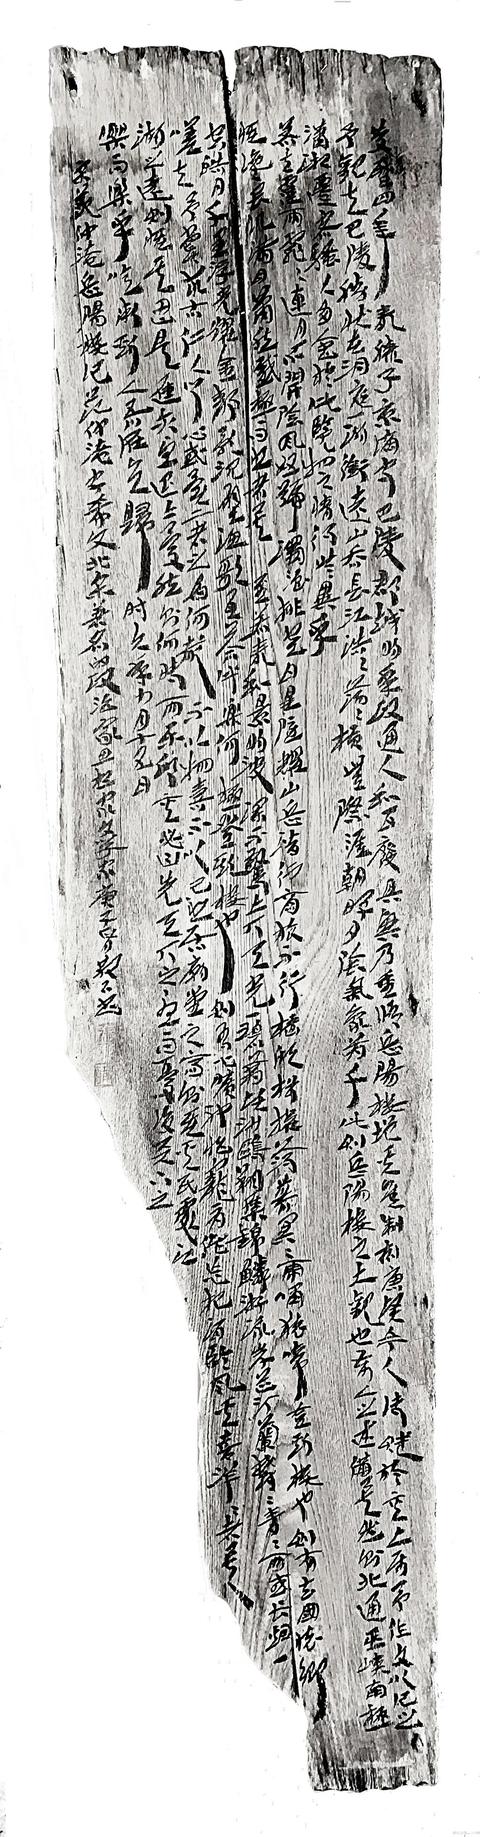 慶曆四年春滕子京謫守巴陵郡越明年政通人和百廢具興乃重修岳陽樓增其舊制刻唐賢今人詩賦於其上屬予作文以記之
予觀夫巴陵勝狀在洞庭一湖銜遠山吞長江浩浩湯湯橫無際涯朝暉夕陰氣象萬千此則岳陽樓之大觀也前人之述備矣然則北通巫峽南極
瀟湘遷客騷人多會於此覽物之情得無異乎
若夫霪雨霏霏連月不開陰風怒號濁浪排空日星隱耀山岳潛形商旅不行檣傾楫摧薄暮冥冥虎嘯猿啼登斯樓也則有去國懷鄉
憂讒畏譏滿目蕭然感極而悲者矣至若春和景明波瀾不驚上下天光一碧萬頃沙鷗翔集錦鱗游泳岸芷汀蘭郁郁青青而或長煙一
空皓月千里浮光躍金靜影沉璧漁歌互答此樂何極登斯樓也則有心曠神怡寵辱皆忘把酒臨風其喜洋洋者矣
嗟夫予嘗求古仁人之心或異二者之為何哉不以物喜不以己悲居廟堂之高則憂其民處江
湖之遠則憂其君是進亦憂退亦憂然則何時而樂耶其必曰先天下之憂而憂後天下之
樂而樂乎噫微斯人吾誰與歸時六年九月十五日
范仲淹岳陽樓記范仲淹字希文北宋著名的政治家思想家文學家